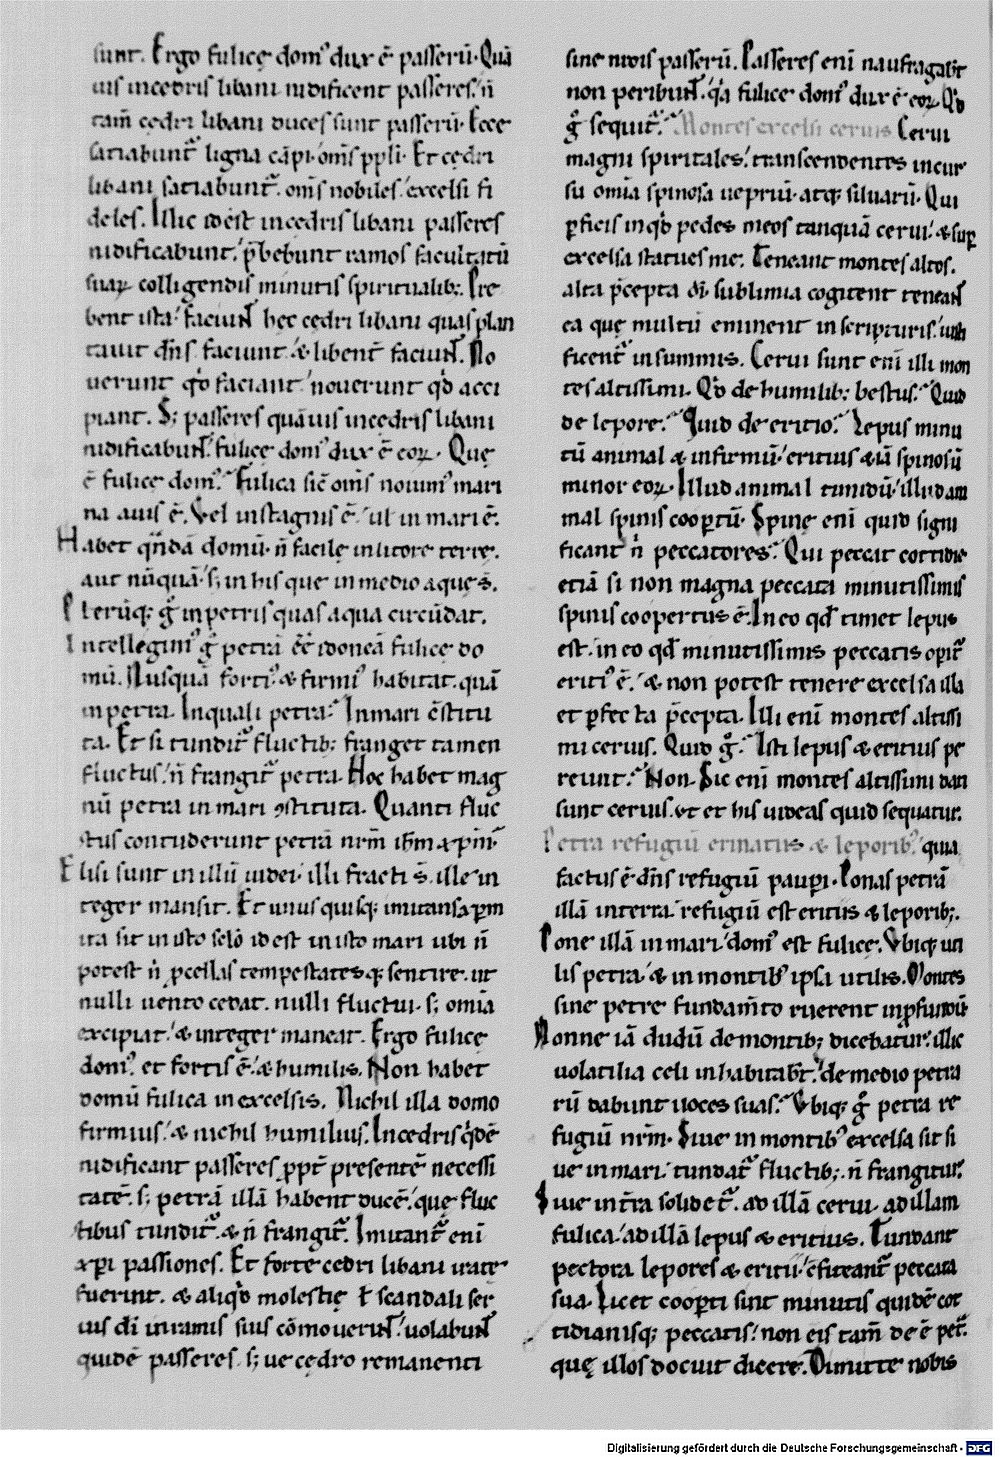 sunt. Ergo fulicę dom᷒ dux ē passerū. Quā
uis incedris libani nidificent passeres. n̄
tam̄ cedri libani duces sunt passerū. Ecce
satiabunt᷑ ligna cāpi. om̄s ppl̄i. Et cędri
libani satiabunt᷑. om̄s nobiles. excelsi fi
deles. Illic idest incedris libani passeres
nidificabunt. p̄bebunt ramos facultatū
suaꝝ colligendis minutis spiritualib;. Pre
bent ista. faciunt hęc cędri libani quas plan
tauit dn̄s faciunt. & libent᷑ faciunt. No
uerunt qd̄ faciant. nouerunt qd̄ acci
piant. S; passeres quāuis incedris libani
nidificabunt. fulicę dom᷒ dux ē eoꝝ. Quę
ē fulicę dom᷒. Fulica sic̄ om̄s nouim᷒ mari
na auis ē. Vel instagnis ē. ul̄ in mari ē.
Habet qn̄dā domū. n̄ facile inlitore terrę.
aut nūquā. s; in his que in medio aque s̄.
Plerūq; g̊ inpetris quas aqua circūdat.
Intellegim᷒ g̊ petrā ēē idoneā fulicę do
mū. Nusquā forti᷒ & firmi᷒ habitat. quā
inpetra. Inquali petra. Inmari c̄stitu
ta. Et si tundit᷑ fluctib; franget tamen
fluctus. n̄ frangit᷑ petra. Hoc habet mag
nū petra in mari ꝯstituta. Quanti fluc
tus contuderunt petrā nr̄m ih̄m xp̄m.
Elisi sunt in illū iudei. illi fracti s̄. ille in
teger mansit. Et unus quisq; imitans xp̄m
ita sit in isto sclo idest in isto mari ubi n̄
potest n̄ ꝓcellas tempestatesq; sentire. ut
nulli uento cedat. nulli fluctui. s; omīa
excipiat. & integer maneat. Ergo fulicę
dom᷒. et fortis ē. & humilis. Non habet
domū fulica in excelsis. Nichil illa domo
firmius. & nichil humilius. Incedris qidē
nidificant passeres ꝓpt̄ presentē necessi
tatē. s; petrā illā habent ducē. quę fluc
tibus tundit᷑. & n̄ frangit᷑. Imitant᷑ enī
xp̄i passiones. Et forte cedri libani irate
fuerint. & aliqd̄ molestię ł scandali ser
uis dī inramis suis cōmouerint. uolabunt
quidē passeres. s; ue cędro remanenti
sine nidis passerū. Passeres enī naufragabt̄
non peribunt. qa fulice dom᷒ dux ē eoꝝ. Qd̄
g̊ sequit᷑. Montes excelsi ceruis Cerui
magni spiritales. transcendentes incur
su omīa spinosa ueprium. atq; siluarū. Qui
ꝑficis inqd̄ pedes meos tanquā cerui. & sup
excelsa statues me. Teneant montes altos.
alta p̄cepta dī. sublimia cogitent teneant
ea quę multū eminent in scripturis.
ficent᷑ in summis. Cerui sunt enī illi mon
tes altissimi. Qd̄ de humilib; bestiis. Quid
de lepore. Quid de eritio. Lepus minu
tū animal & infirmū. eritius & iā spinosū
minor eoꝝ. Illud animal timidū. illud ani
mal spinis cooꝑtū. Spinę enī quid signi
ficant n̄ peccatores. Qui peccat cottidie
etiā si non magna peccata minutissimis
spinis coopertus ē. In eo qd̄ timet lepus
est. in eo qd̄ minutissimis peccatis opit᷑
eriti᷒ ē. & non potest tenere excelsa illa
et ꝑfecta p̄cepta. Illi enī montes altissi
mi ceruis. Quid g̊. Isti lepus & eritius pe
reunt. Non. Sic enī montes altissimi dati
sunt ceruis. ut et his uideas quid sequatur.
Petra refugiū erinatiis & leporib᷒. quia
factus ē dn̄s refugiū pauꝑi. Ponas petrā
illā interra. refugiū est eritiis & leporib;.
Pone illā in mari. dom᷒ est fulicę. Vbiq; uti
lis petra. & in montib᷒ ipsa utilis. Montes
sine petre fundam̄to ruerent inꝓfundū
Nonne iā dudū de montib; dicebatur. illic
uolatilia celi inhabitabt̄. de medio petra
rū dabunt uoces suas. Vbiq; g̊ petra re
fugiū nr̄m. Siue in montib᷒ excelsa sit si
ue in mari. tundat᷑ fluctib;. n̄ frangitur.
Siue in tr̄a solidet᷑. ad illā cerui. ad illam
fulica. ad illā lepus & eritius. Tundant
pectora lepores & eritii. c̄fiteant᷑ peccata
sua. Licet cooꝑti sint minutis quidē cot
tidianisq; peccatis. non eis tam̄ deē pet᷑.
quę illos docuit dicere. Dimitte nobis
Digitalisierung gefördert durch die Deutsche Forschungsgemeinschaft - DFG